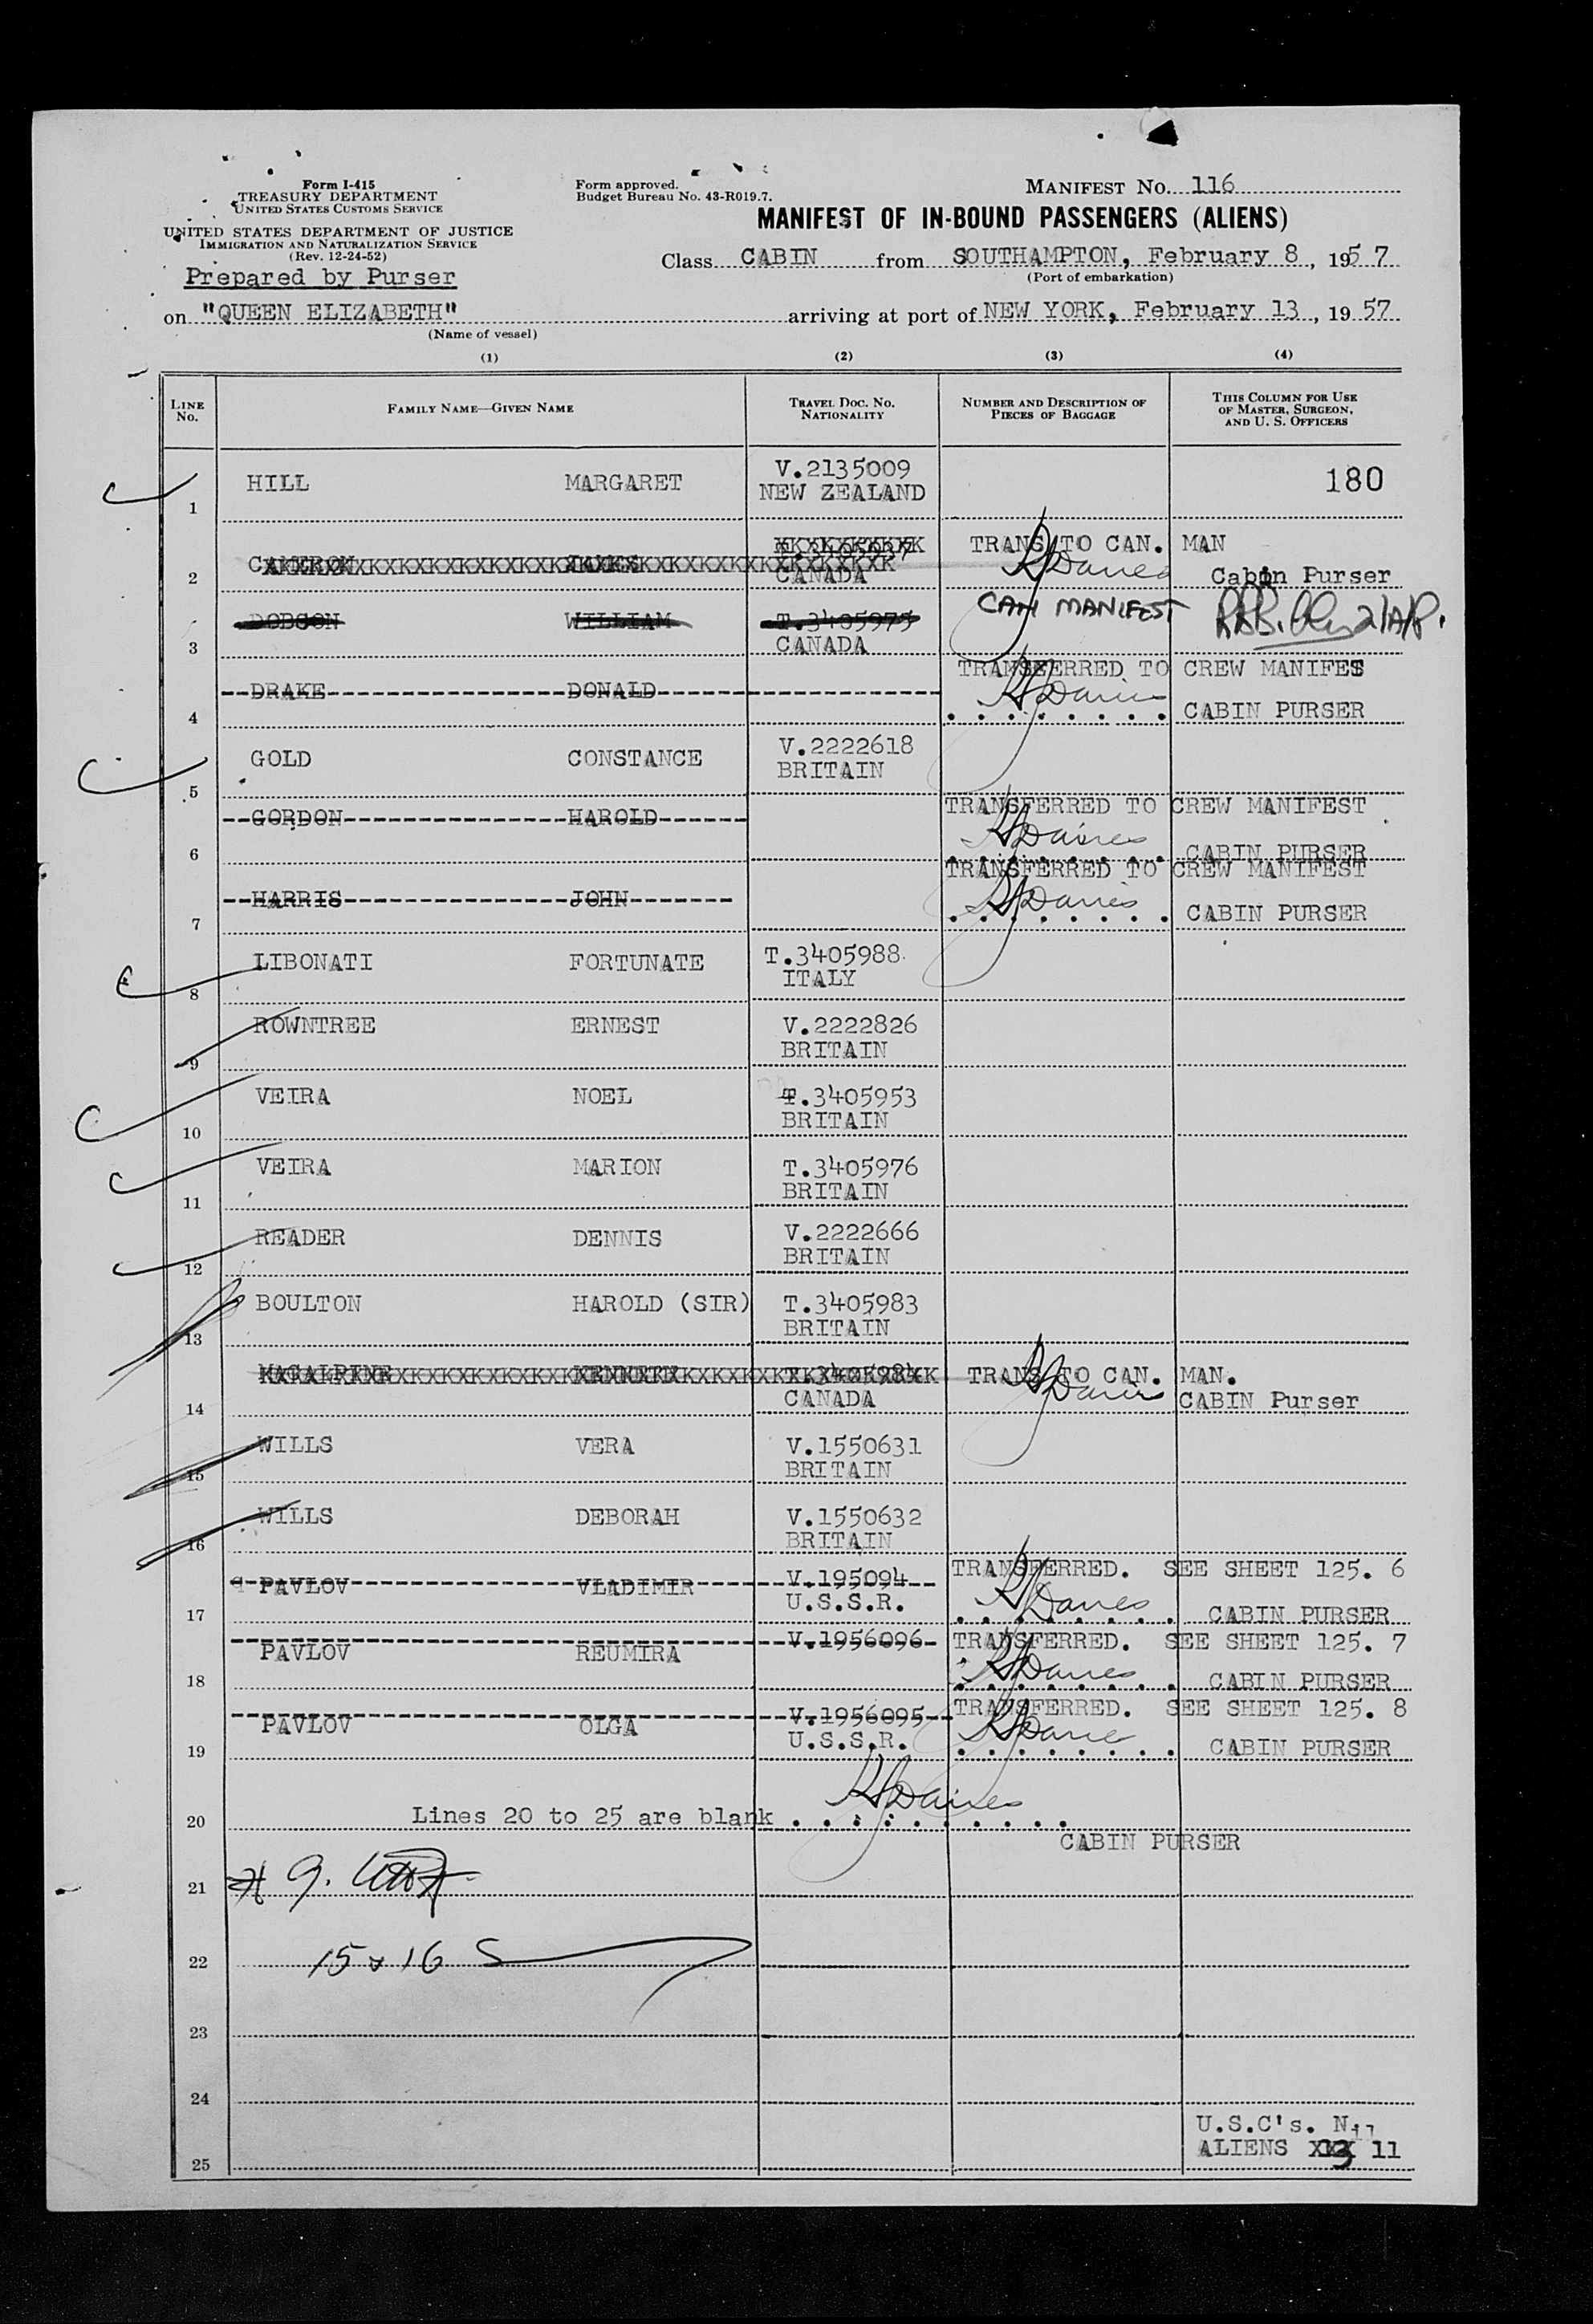 Form I-415
TREASURY DEPARTMENT
UNITED STATES CUSTOMS SERVICE
UNITED STATES DEPARTMENT OF JUSTICE
IMMIGRATION AND NATURALIZATION SERVICE
(Rev. 12-24-52)
Prepared by Purser
Form approved.
Budget Bureau No. 43-R019.7.
MANIFEST NO. 116
MANIFEST OF IN-BOUND PASSENGERS (ALIENS)
Class CABIN from SOUTHAMPTON, February 8, 1957
(Port of embarkation)
on "QUEEN ELIZABETH" arriving at port of NEW YORK, February 13, 1957
(Name of vessel)
(1) (2) (3) (4)
LINE No. FAMILY NAME—GIVEN NAME TRAVEL DOC. NO. NATIONALITY NUMBER AND DESCRIPTION OF PIECES OF BAGGAGE THIS COLUMN FOR USE OF MASTER, SURGEON, AND U. S. OFFICERS
1 HILL MARGARET V.2135009 NEW ZEALAND 180
2 CAMERON JAMES CANADA TRANS TO CAN. MAN
Davies Cabin Purser
3 DOBSON WILLIAM T.3405975 CANADA CAN MANIFEST
4 DRAKE DONALD TRANSFERRED TO CREW MANIFEST
Davies CABIN PURSER
5 GOLD CONSTANCE V.2222618 BRITAIN
6 GORDON HAROLD TRANSFERRED TO CREW MANIFEST
Davies CABIN PURSER
7 HARRIS JOHN TRANSFERRED TO CREW MANIFEST
Davies CABIN PURSER
8 LIBONATI FORTUNATE T.3405988 ITALY
9 ROWNTREE ERNEST V.2222826 BRITAIN
10 VEIRA NOEL T.3405953 BRITAIN
11 VEIRA MARION T.3405976 BRITAIN
12 READER DENNIS V.2222666 BRITAIN
13 BOULTON HAROLD (SIR) T.3405983 BRITAIN
14 MACALPINE KENNETH T.3405984 CANADA TRANS TO CAN. MAN.
Davies CABIN Purser
15 WILLS VERA V.1550631 BRITAIN
16 WILLS DEBORAH V.1550632 BRITAIN
17 PAVLOV VLADIMIR V.195094 U.S.S.R. TRANSFERRED. SEE SHEET 125. 6
Davies CABIN PURSER
18 PAVLOV REUMIRA V.1956096 TRANSFERRED. SEE SHEET 125. 7
Davies CABIN PURSER
19 PAVLOV OLGA V.1956095 U.S.S.R. TRANSFERRED. SEE SHEET 125. 8
Davies CABIN PURSER
20 Lines 20 to 25 are blank Davies
CABIN PURSER
21
22 15 & 16
23
24
U.S.C's.
ALIENS 11
25